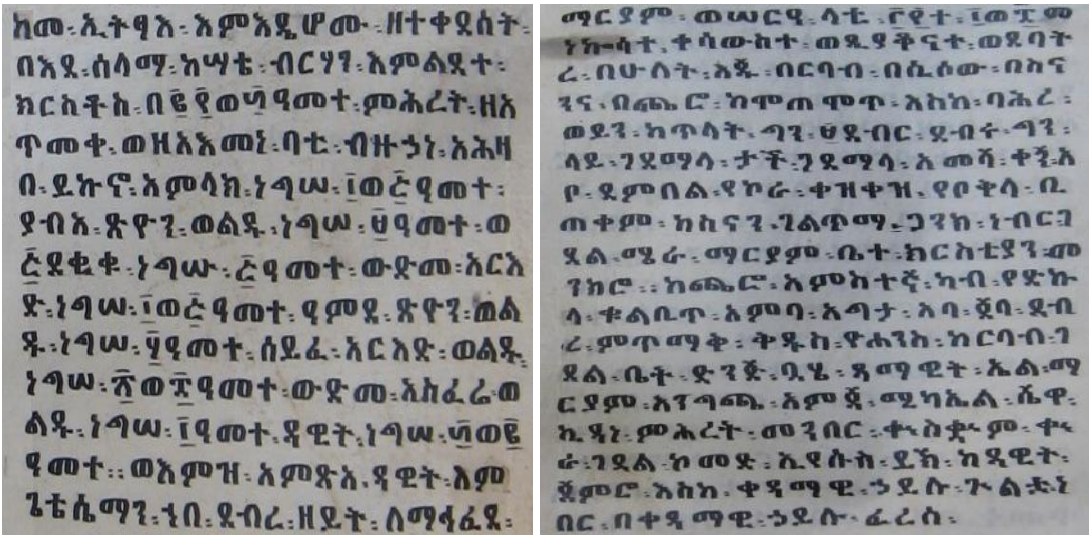 ከመ፡ ኢትፃእ፡ እምአዴሆሙ፡ ዘተቀደሰት፡
በእደ፡ ሰላማ፡ ከሣቴ፡ ብርሃን፡ እምልደተ፡
ክርስቶስ፡ በ፫፻ወ፴ዓመተ፡ ምሕረት፡ ዘአ
ጥመቀ፡ ወዘአእመነ፡ ባቲ፡ ብዙኃነ፡ አሕዛ
በ፡ ይኩኖ፡ አምላክ፡ ነግሠ፡ ፲ወ፩ዓመተ፡
ያብእ፡ ጽዮን፡ ወልዱ፡ ነግሠ፡ ፱ዓመተ፡ ወ
፩ደቂቀ፡ ነግሡ፡ ፩ዓመተ፡ ውድመ፡ አርእ
ድ፡ ነግሠ፡ ፲ወ፩ዓመተ፡ ዓምደ፡ ጽዮን፡ ወል
ዱ፡ ነግሠ፡ ፴ዓመተ፡ ሰይፈ፡ አርእድ፡ ወልዱ፡
ነግሠ፡ ወ፯ዓመተ፡ ውድመ፡ አስፈሬ፡ ወ
ልዱ፡ ነግሠ፡ ፲ዓመተ፡ ዳዊት፡ ነግሠ፡ ፴ወ፫
ዓመተ፡፡ ወእምዝ፡ አምጽአ፡ ዳዊት፡ እም
ጌቴሴማን፡ ኀበ፡ ደብረ፡ ዘይት፡ ለማኅፈደ፡
ማርያም፡ ወሠርዓ፡ ላቲ፡ ፲ወ፯መ
ነኮሳት፡ ቀሳውስተ፡ ወዲያቆናተ፡ ወደባት
ረ፡ በሁለት፡ እጁ፡ በርባብ፡ በሲሰው፡ በእና
ንና፡ በጨሮ፡ ከሞጠሞጥ፡ እስከ፡ ባሕረ፡
ወይን፡ ከጥላት፡ ጣን፡ ደብር፡ ደብሩ፡ ጣን፡
ላይ፡ ገደማላ፡ ታች፡ ገደማላ፡ አመሻ፡ ቀኝ፡ አ
ቦ፡ ደምበል፡ የኮራ፡ ቀዝቀዝ፡ የቦቅላ፡ ቢ
ጠቀም፡ ከስናን፡ ገልጥማ፡ ጋንክ፡ ነብርገ
ደል፡ ሜራ፡ ማርያም፡ ቤተ፡ ክርስቲያን፡ መ
ንክሮ፡፡ ከጨሮ፡ እምስተኛ፡ ካብ፡ የድኩ
ላ፡ ቁልቢጥ፡ አምባ፡ አጣታ፡ አባ፡ ጀባ፡ ደብ
ረ፡ ምጥማቅ፡ ቅዱስ፡ ዮሐንስ፡ ከርባብ፡ ገ
ደል፡ ቤት፡ ድንጅ፡ ቧሄ፡ ዳማዊት፡ ኤል፡ ማ
ርያም፡ እንጣጪ፡ እምጇ፡ ሚካኤል፡ ሼዋ፡
ኪዳነ፡ ምሕረት፡ መንበር፡ ቍስቋም፡ ቍ
ራ፡ ገደል፡ ኮመድ፡ ኢየሱስ፡ ይኽ፡ ከዳዊት፡
ጀምሮ፡ እስከ፡ ቀዳማዊ፡ ኃይሉ፡ ጉልቱ፡ ነ
በር፡ በቀዳማዊ፡ ኃይሉ፡ ፈረሰ፡